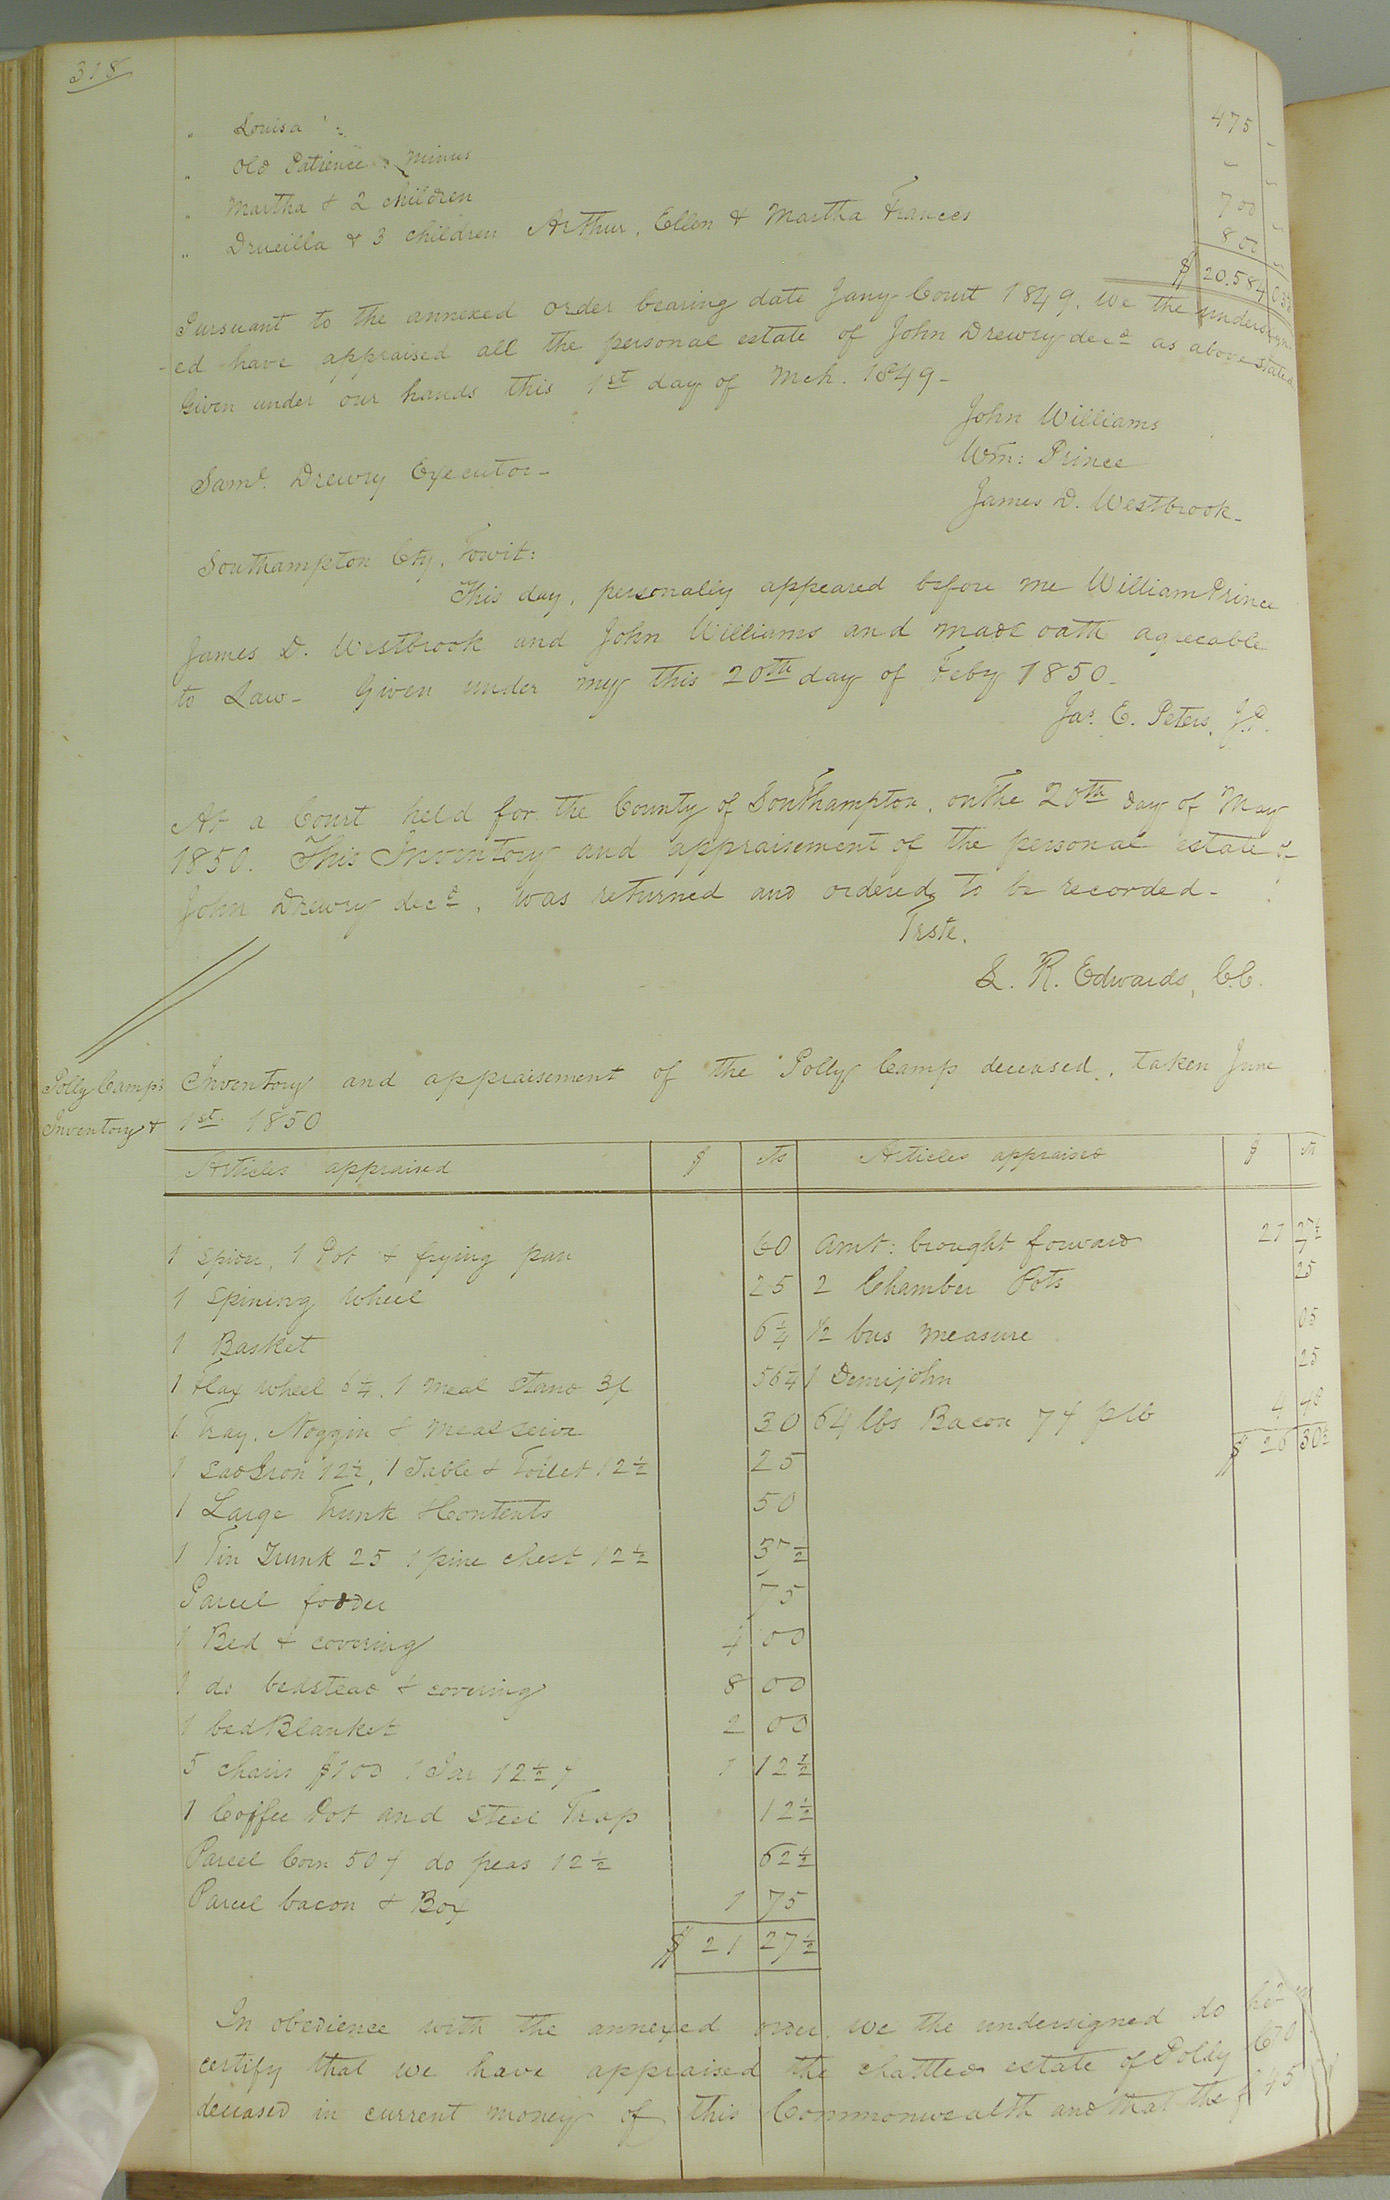 318
" Louisa 475 -
" Old Patience: minus - -
" Martha & 2 children 700 -
" Drucilla & 3 children Arthur, Ellen & Martha Frances 800 -
$ 20.584 03
Pursuant to the annexed order bearing date Jany Court 1849. We the undersign
-ed have appraised all the personal estate of John Drewry decd as above stated
Given under our hands this 1st day of Mch. 1849-
John Williams
Wm: Prince
James D. Westbrook-
Saml. Drewry Executor-
Southampton Cty. Towit:
This day, personally appeared before me William Prince
James D. Westbrook and John Williams and made oath agreeable
to Law- Given under my this 20th day of Feby 1850-
Jas. E. Peters, J.P.
At a Court held for the County of Southampton, on the 20th day of May
1850. This Inventory and appraisement of the personal estate of
John Drewry decd, was returned and ordered to be recorded-
Teste,
L. R. Edwards, C.C.
Polly Camps
Inventory &
Inventory and appraisement of the Polly Camp deceased, taken June
1st 1850
Articles appraised $ cts Articles appraised $ cts
1 Spider, 1 Pot & frying pan 60 Amt: brought forward 21 27½
1 Spining Wheel 25 2 Chamber Pots 25
1 Basket 6¼ ½ bus measure 05
1 Flax wheel 6¼, 1 meal Stand 3/ 56¼ 1 Demijohn 25
1 Tray, Noggin & meal seive 30 64 lbs Bacon 7¢ p lb 4 48
1 Sad Iron 12½, 1 Table & Toilet 12½ 25 $ 26 30½
1 Large Trunk & Contents 50
1 Tin Trunk 25 1 pine chest 12½ 37½
Parcel fodder 75
1 Bed & covering 4 00
1 do bedstead & covering 8 00
1 bed Blanket 2 00
5 chairs $100 1 Jar 12½¢ 1 12½
1 Coffee Pot and Steel Trap 12½
Parcel Corn 50¢ do peas 12½ 62½
Parcel bacon & Box 1 75
$ 21 27½
In obedience with the annexed order, we the undersigned do
certify that we have appraised the chattled estate of Polly
deceased in current money of this Commonwealth and that the